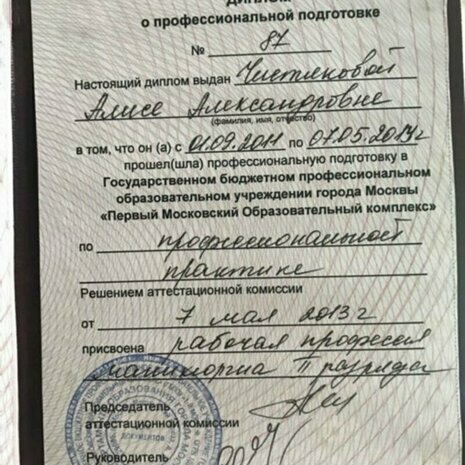 ДИПЛОМ
о профессиональной подготовке
№ 87
Настоящий диплом выдан Чистяковой
Алисе Александровне
(фамилия, имя, отчество)
в том, что он (а) с 01.09.2011 по 07.05.2013 г
прошел(шла) профессиональную подготовку в
Государственном бюджетном профессиональном
образовательном учреждении города Москвы
«Первый Московский Образовательный комплекс»
по профессиональной
практике
Решением аттестационной комиссии
от 7 мая 2013 г
присвоена рабочая профессия
II разряда
Председатель
аттестационной комиссии
Руководитель
ДОКУМЕНТОВ